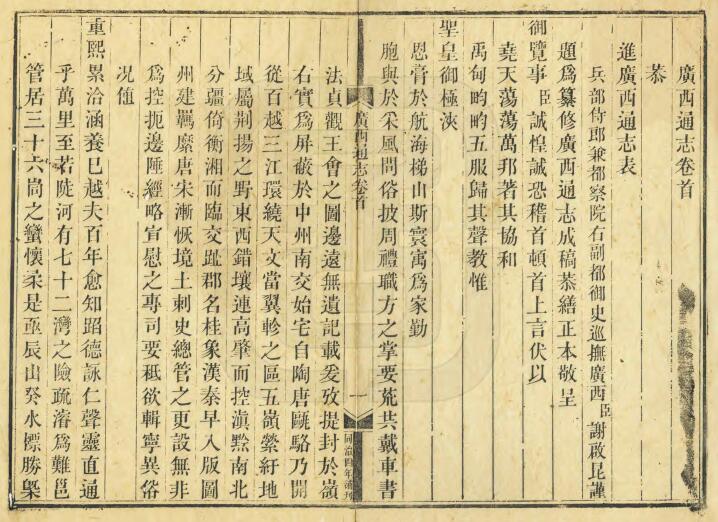 廣西通志卷首
恭
進廣西通志表
兵部侍郎兼都察院右副都御史巡撫廣西臣謝啟昆謹
題爲纂修廣西通志成稿恭繕正本敬呈
御覽事臣誠惶誠恐稽首頓首上言伏以
堯天蕩蕩萬邦著其協和
禹甸畇畇五服歸其聲教惟
聖皇御極浹
恩膏於航海梯山斯寰寓爲家勤
胞與於采風問俗披周禮職方之掌要荒共戴車書
廣西通志卷首
一
同治四年補刊
法貞觀王會之圖邊遠無遺記載爰攷提封於嶺
右實爲屏蔽於中州南交始宅自陶唐甌駱乃開
從百越三江環繞天文當翼軫之區五嶺縈紆地
域屬荆揚之野東西錯壤連高肇而控滇黔南北
分疆倚衡湘而臨交趾郡名桂象漢秦早入版圖
州建羈縻唐宋漸恢境土刺史總管之更設無非
爲控扼邊陲經略宣慰之專司要秪欲輯寧異俗
况値
重熙累洽涵養已越夫百年愈知昭德詠仁聲靈直通
乎萬里至若陡河有七十二灣之險疏濬爲難邕
管居三十六峝之蠻懷柔是亟辰山癸水標勝槩